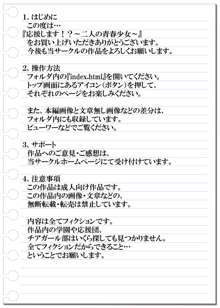 1. はじめに
この度は…
『応援します!?～二人の青春少女～』
をお買い上げいただきありがとうございます。
今後も当サークルの作品をよろしくお願いします。
2. 操作方法
フォルダ内の『index.html』を開いてください。
トップ画面にあるアイコン(ボタン)を押して、
それぞれのページをお楽しみください。
また、本編画像と文章無し画像などの差分は、
フォルダ内にも収録しています。
ビューワーなどでご覧ください。
3. サポート
作品へのご意見・ご感想は、
当サークルホームページにて受け付けています。
4. 注意事項
この作品は成人向け作品です。
この作品内の画像・文章などの、
無断転載・転売は禁止しています。
内容は全てフィクションです。
作品内の学園や応援団、
チアガール部はいくら探しても見つかりません。
全てフィクションだからできること…
ということでお願いします。